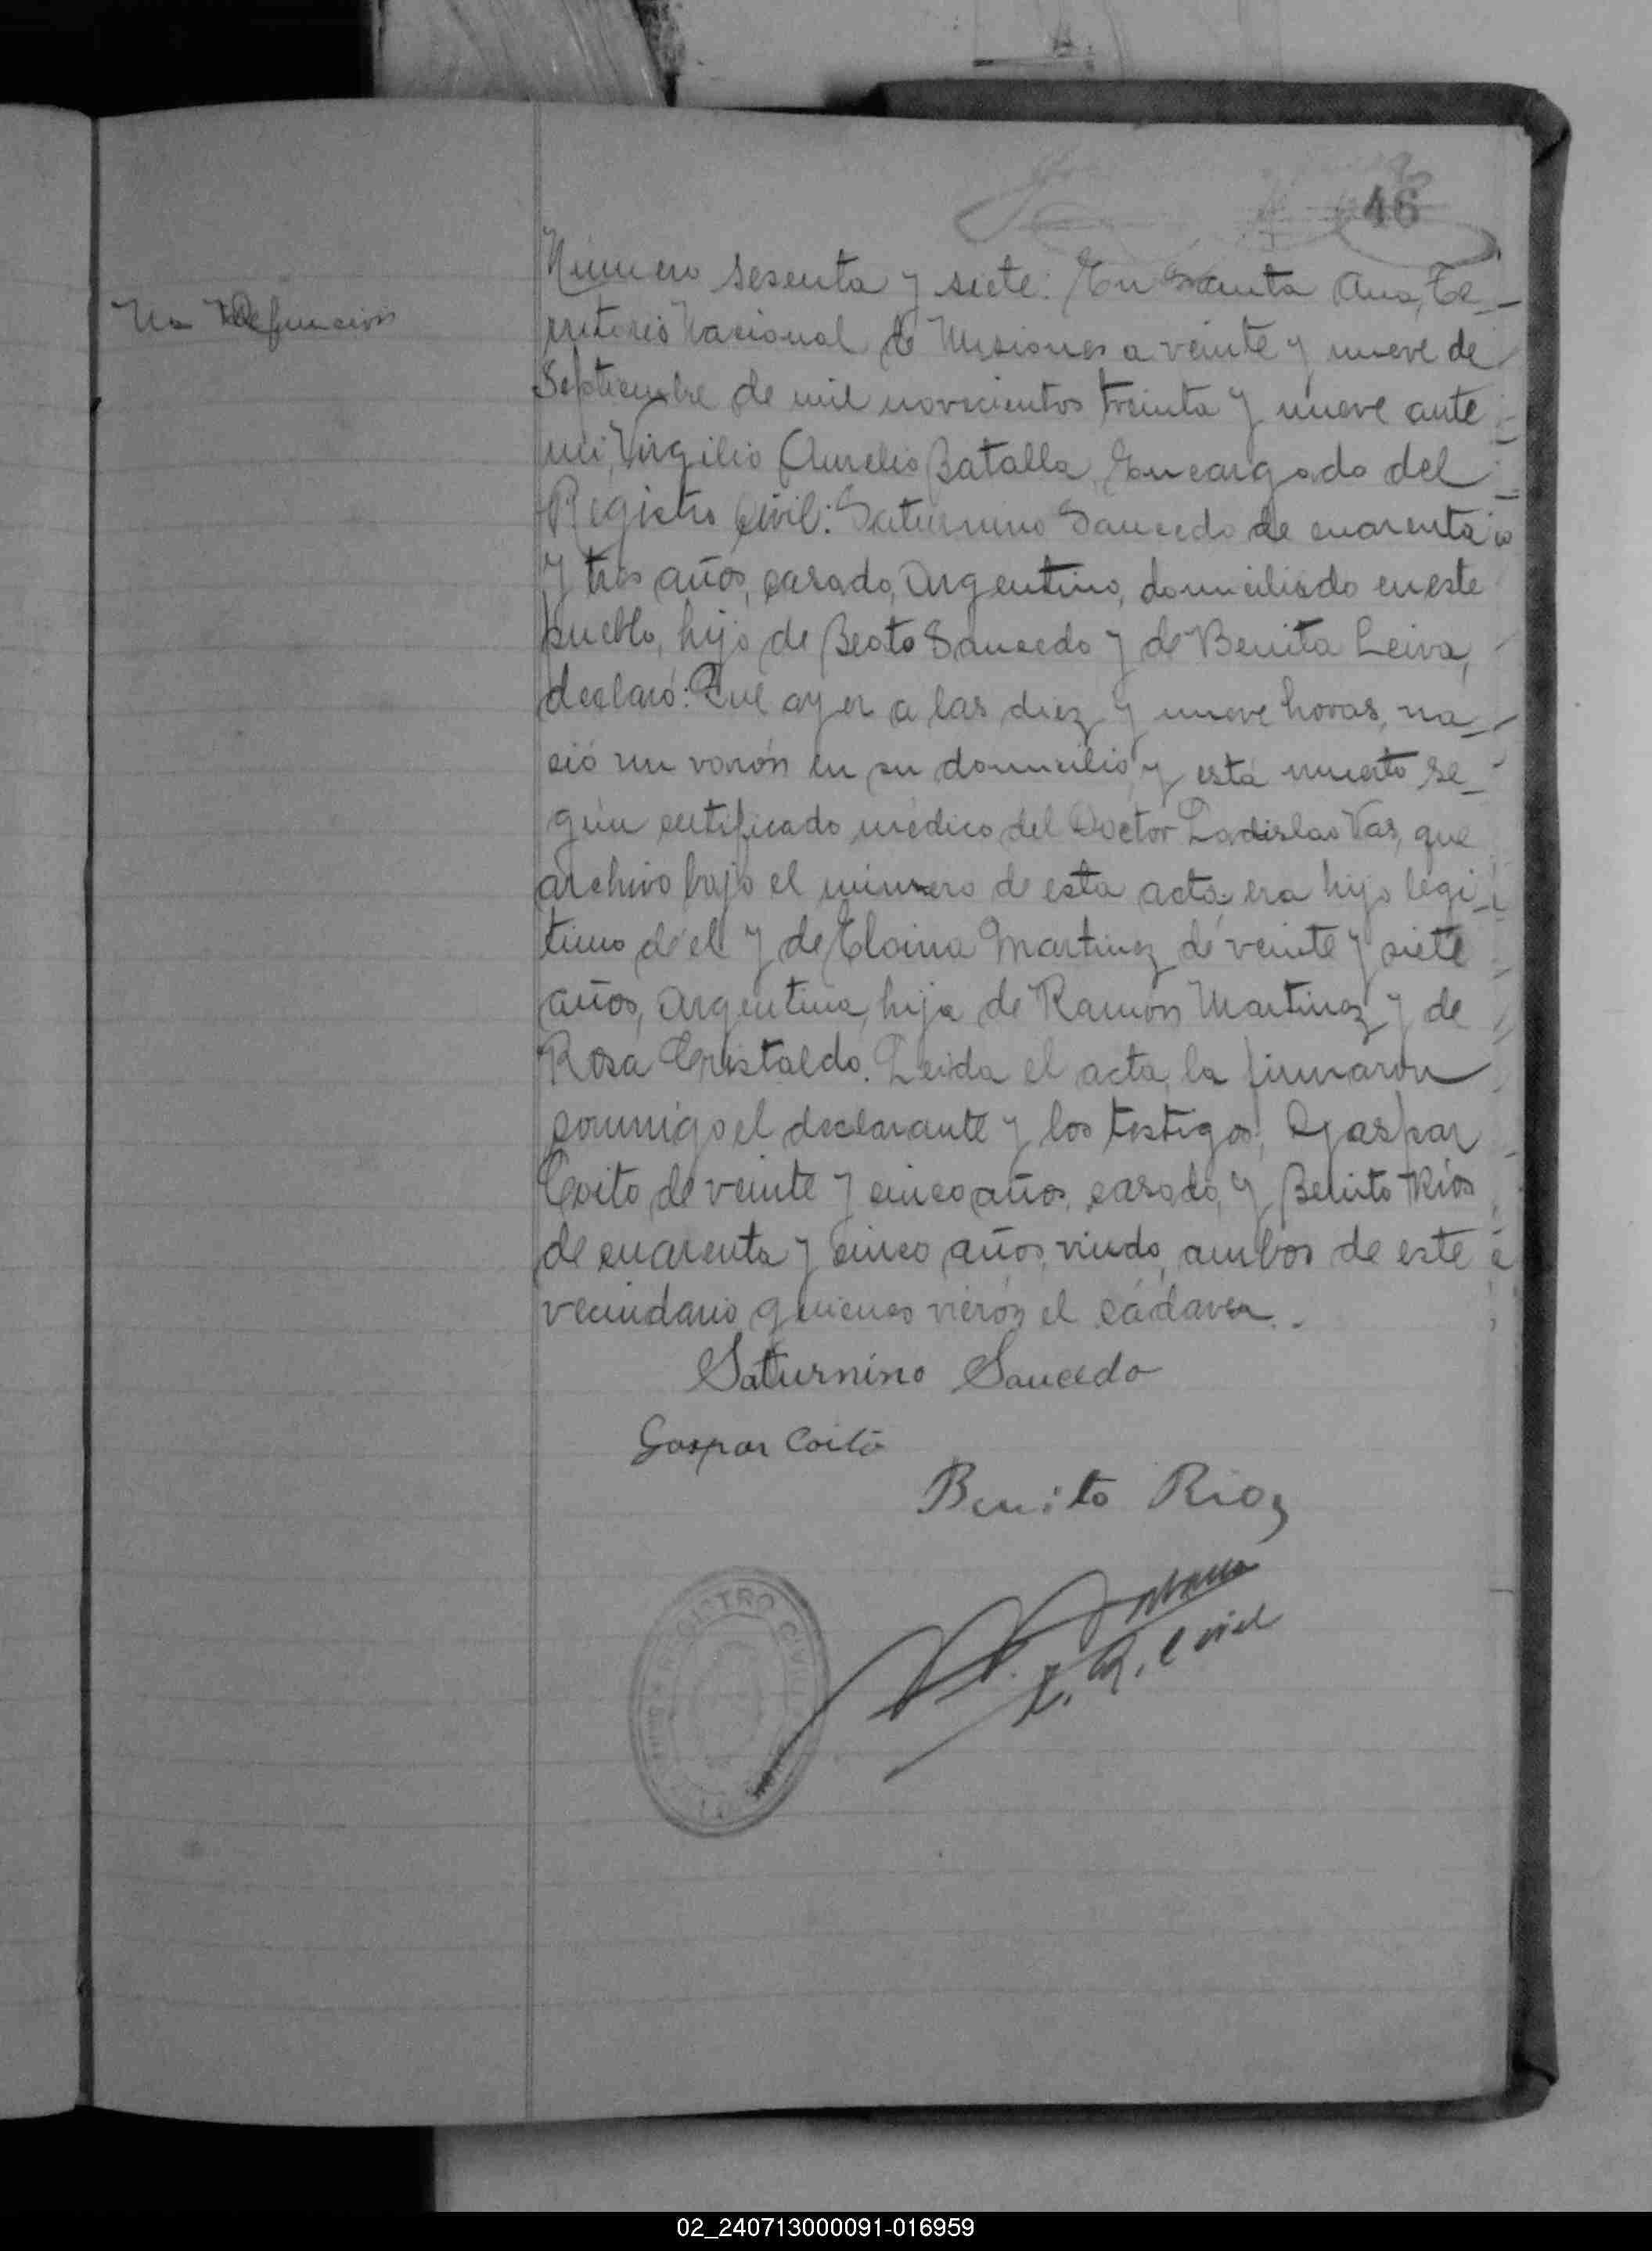 46
Número sesenta y siete: En Santa Ana, Te-
rritorio Nacional de Misiones a veinte y nueve de
Septiembre de mil novecientos treinta y nueve ante
mi, Virgilio Aurelio Batalla, Encargado del
Registro Civil: Saturnino Saucedo de cuarenta
y tres años, casado, Argentino, domiciliado en este
pueblo, hijo de Beato Saucedo y de Benita Leiva,
declaró: Que ayer a las diez y nueve horas, na-
ció un varón en su domicilio y está muerto se-
gún certificado médico del Doctor Ladislao Vas, que
archivo bajo el número de esta acta, era hijo legi-
timo de el y de Eloina Martinez de veinte y siete
años, Argentina, hija de Ramón Martinez y de
Rosa Cristaldo. Leida el acta, la firmaron
conmigo el declarante y los testigos, Gaspar
Coito de veinte y cinco años, casado, y Benito Rios
de cuarenta y cinco años, viudo, ambos de este
vecindario, quienes vierón el cádaver.-
Na Defuncion
Saturnino Saucedo
Gaspar Coito
Benito Rioz
E. R. Civil
REGISTRO CIVIL
02_240713000091-016959